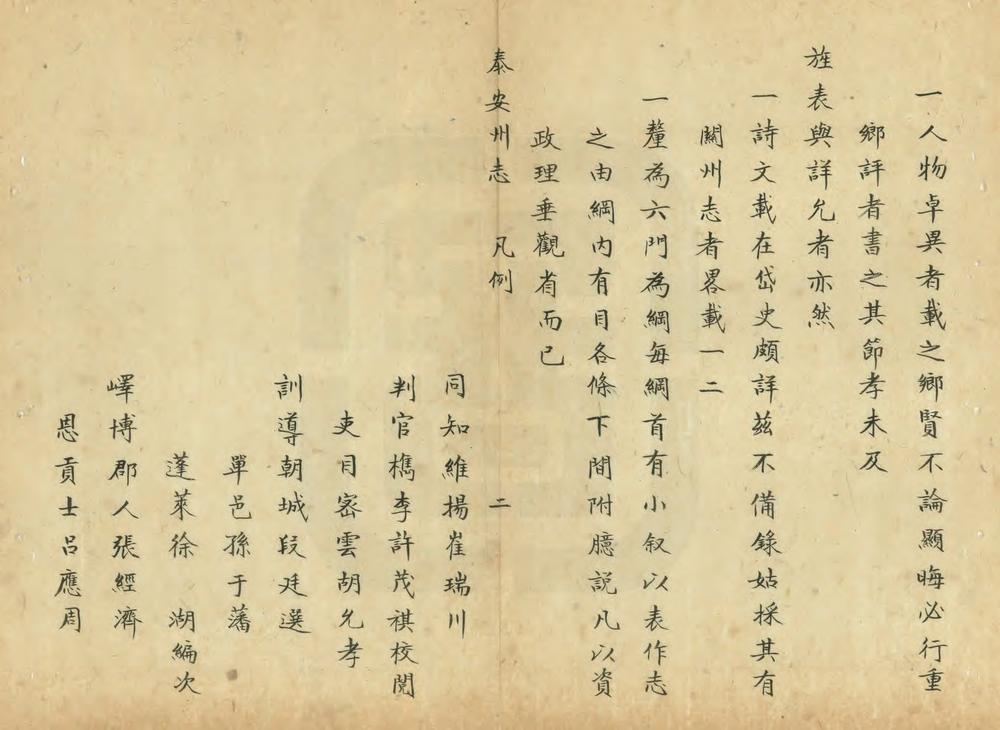 一人物卓異者載之鄉賢不論顯晦必行重
鄉評者書之其節孝未及
旌表與詳允者亦然
一詩文載在岱史頗詳茲不備錄姑採其有
關州志者畧載一二
一釐為六門為綱每綱首有小叙以表作志
之由綱內有目各條下間附臆説凡以資
政理垂觀省而已
泰安州志 凡例 二
同知維揚崔瑞川
判官檇李許茂祺校閱
吏目宻雲胡允孝
訓導朝城段廷選
單邑孫于藩
蓬萊徐 湖編次
嶧博郡人張經濟
恩貢士呂應周